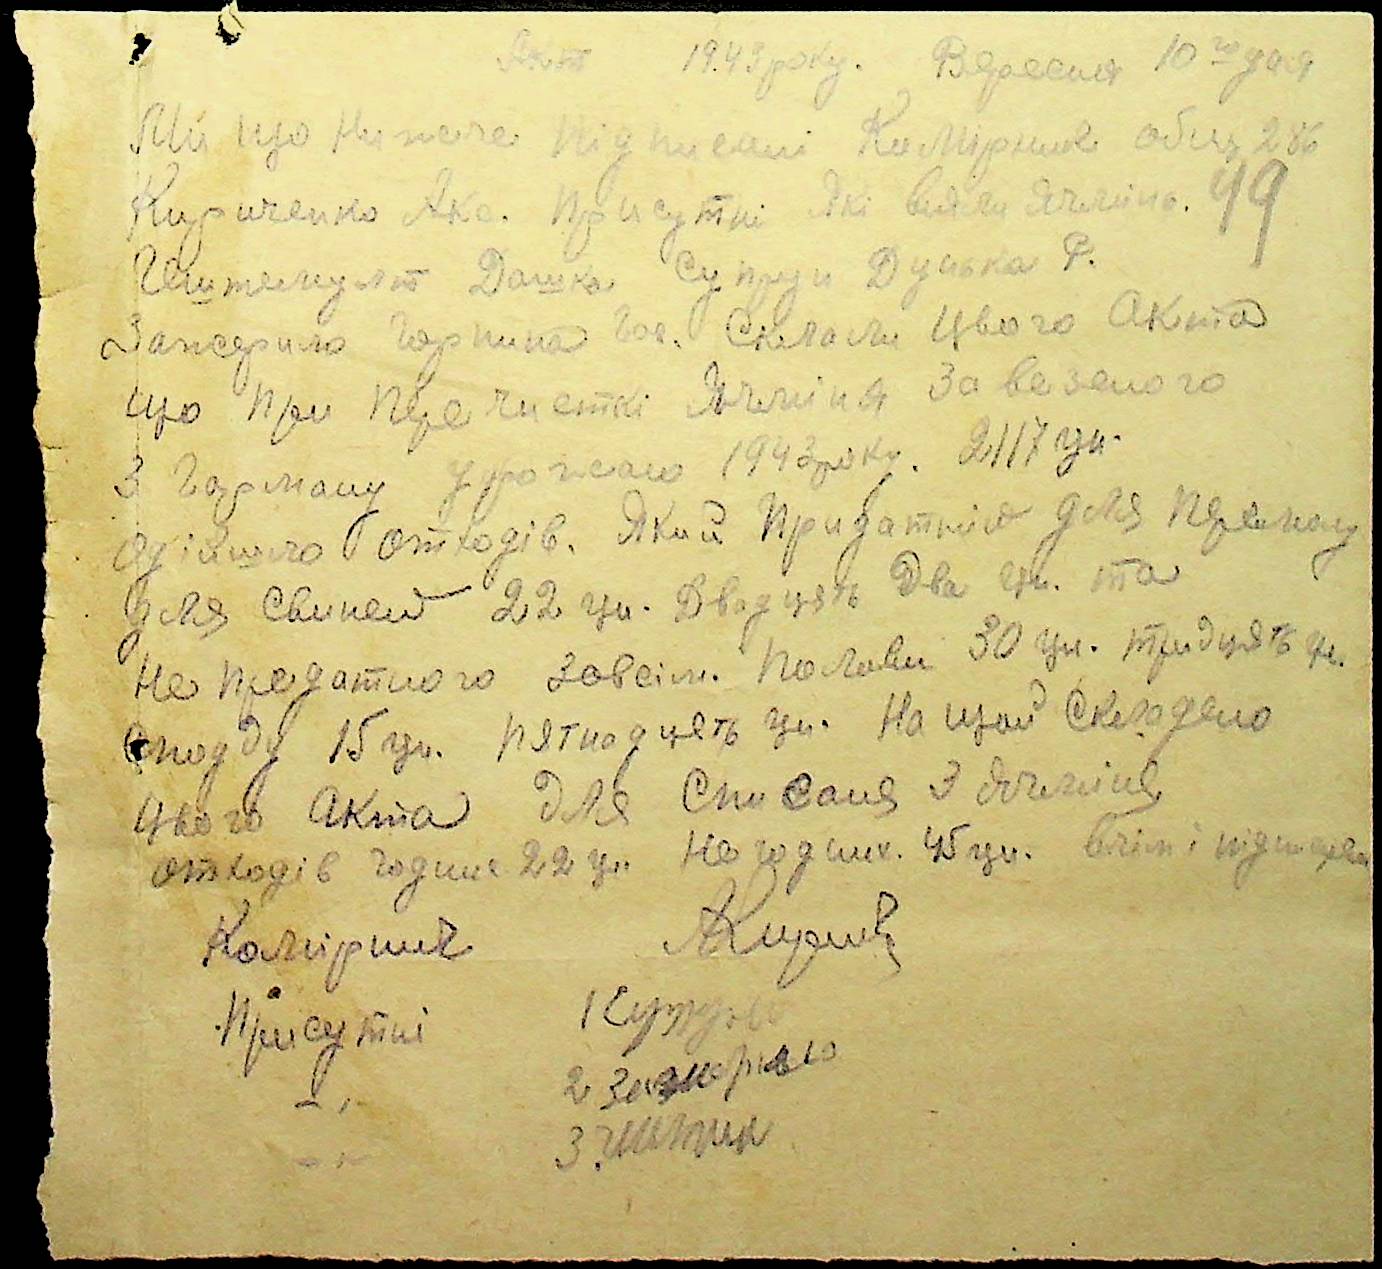 Акт 1943 року. Вересня 10 го дня
Ми що Нижече Підписані Комірник общ 286
Кириченко Акс. Присутні Які віяли Ячмінь. 49
Дашка Супрун Дунька Р.
Зажерило Горпина Склали Цього Акта
що при Перечисткі Ячміня Завезеного
З Гарману Урожаю 1943 року. 2117 цн.
одійшло отходів. Який Придатній для Перемолу
для Свиней 22 цн. Двадцять Два цн. та
Не Предатного Зовсім. Полови 30 цн. тридцять цн.
споду 15 цн. пятнадцять цн. На щой Складено
Цього Акта для Списаня З Ячміня
отходів годних 22 цн. Не годних. 45 цн. вчім і підписуєм
Комірник
Присутні 1
-"- 2
-"- 3.